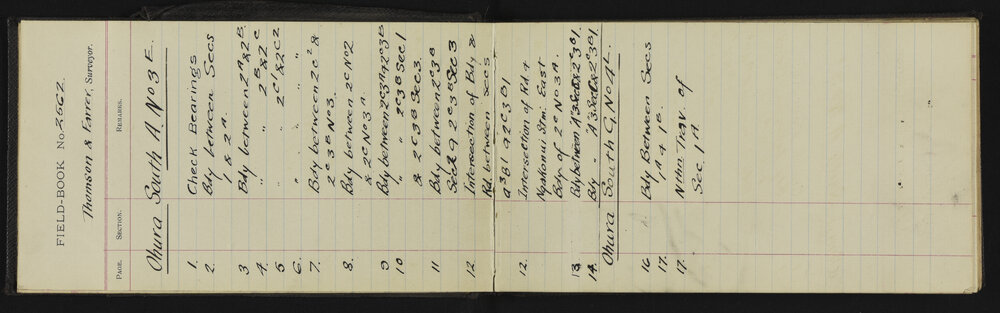 FIELD-BOOK No. 2662.
Thomson & Farrer, Surveyor.
PAGE. SECTION. REMARKS.
Ohura South A No 3 E.
1. Check Bearings
2. Bdy between Secs
1 & 2A.
3 Bdy between 2A & 2B.
4. " " 2B & 2C
5 " " 2C1 & 2C2
6. " "
7. Bdy between 2C2 &
2C3B No3.
8. Bdy between 2C No2
& 2C No 3A.
9 Bdy between 2C3A & 2C3B
10 " " 2C3B Sec. 1
& 2C3B Sec 3.
11 Bdy between 2C3B
Sec 2 & 2C3B Sec 3
12. Intersection of Bdy &
Rd. between secs
2C3B1
12. Intersection of Rd &
Ngakonui Stm. East
Bdy of 2C No 3A.
13 Bdy between
14. Bdy "
Ohura South G. No 4L.
16 Bdy Between Secs
17. 1A & 1B.
17. Nthn Trav. of
Sec. 1A